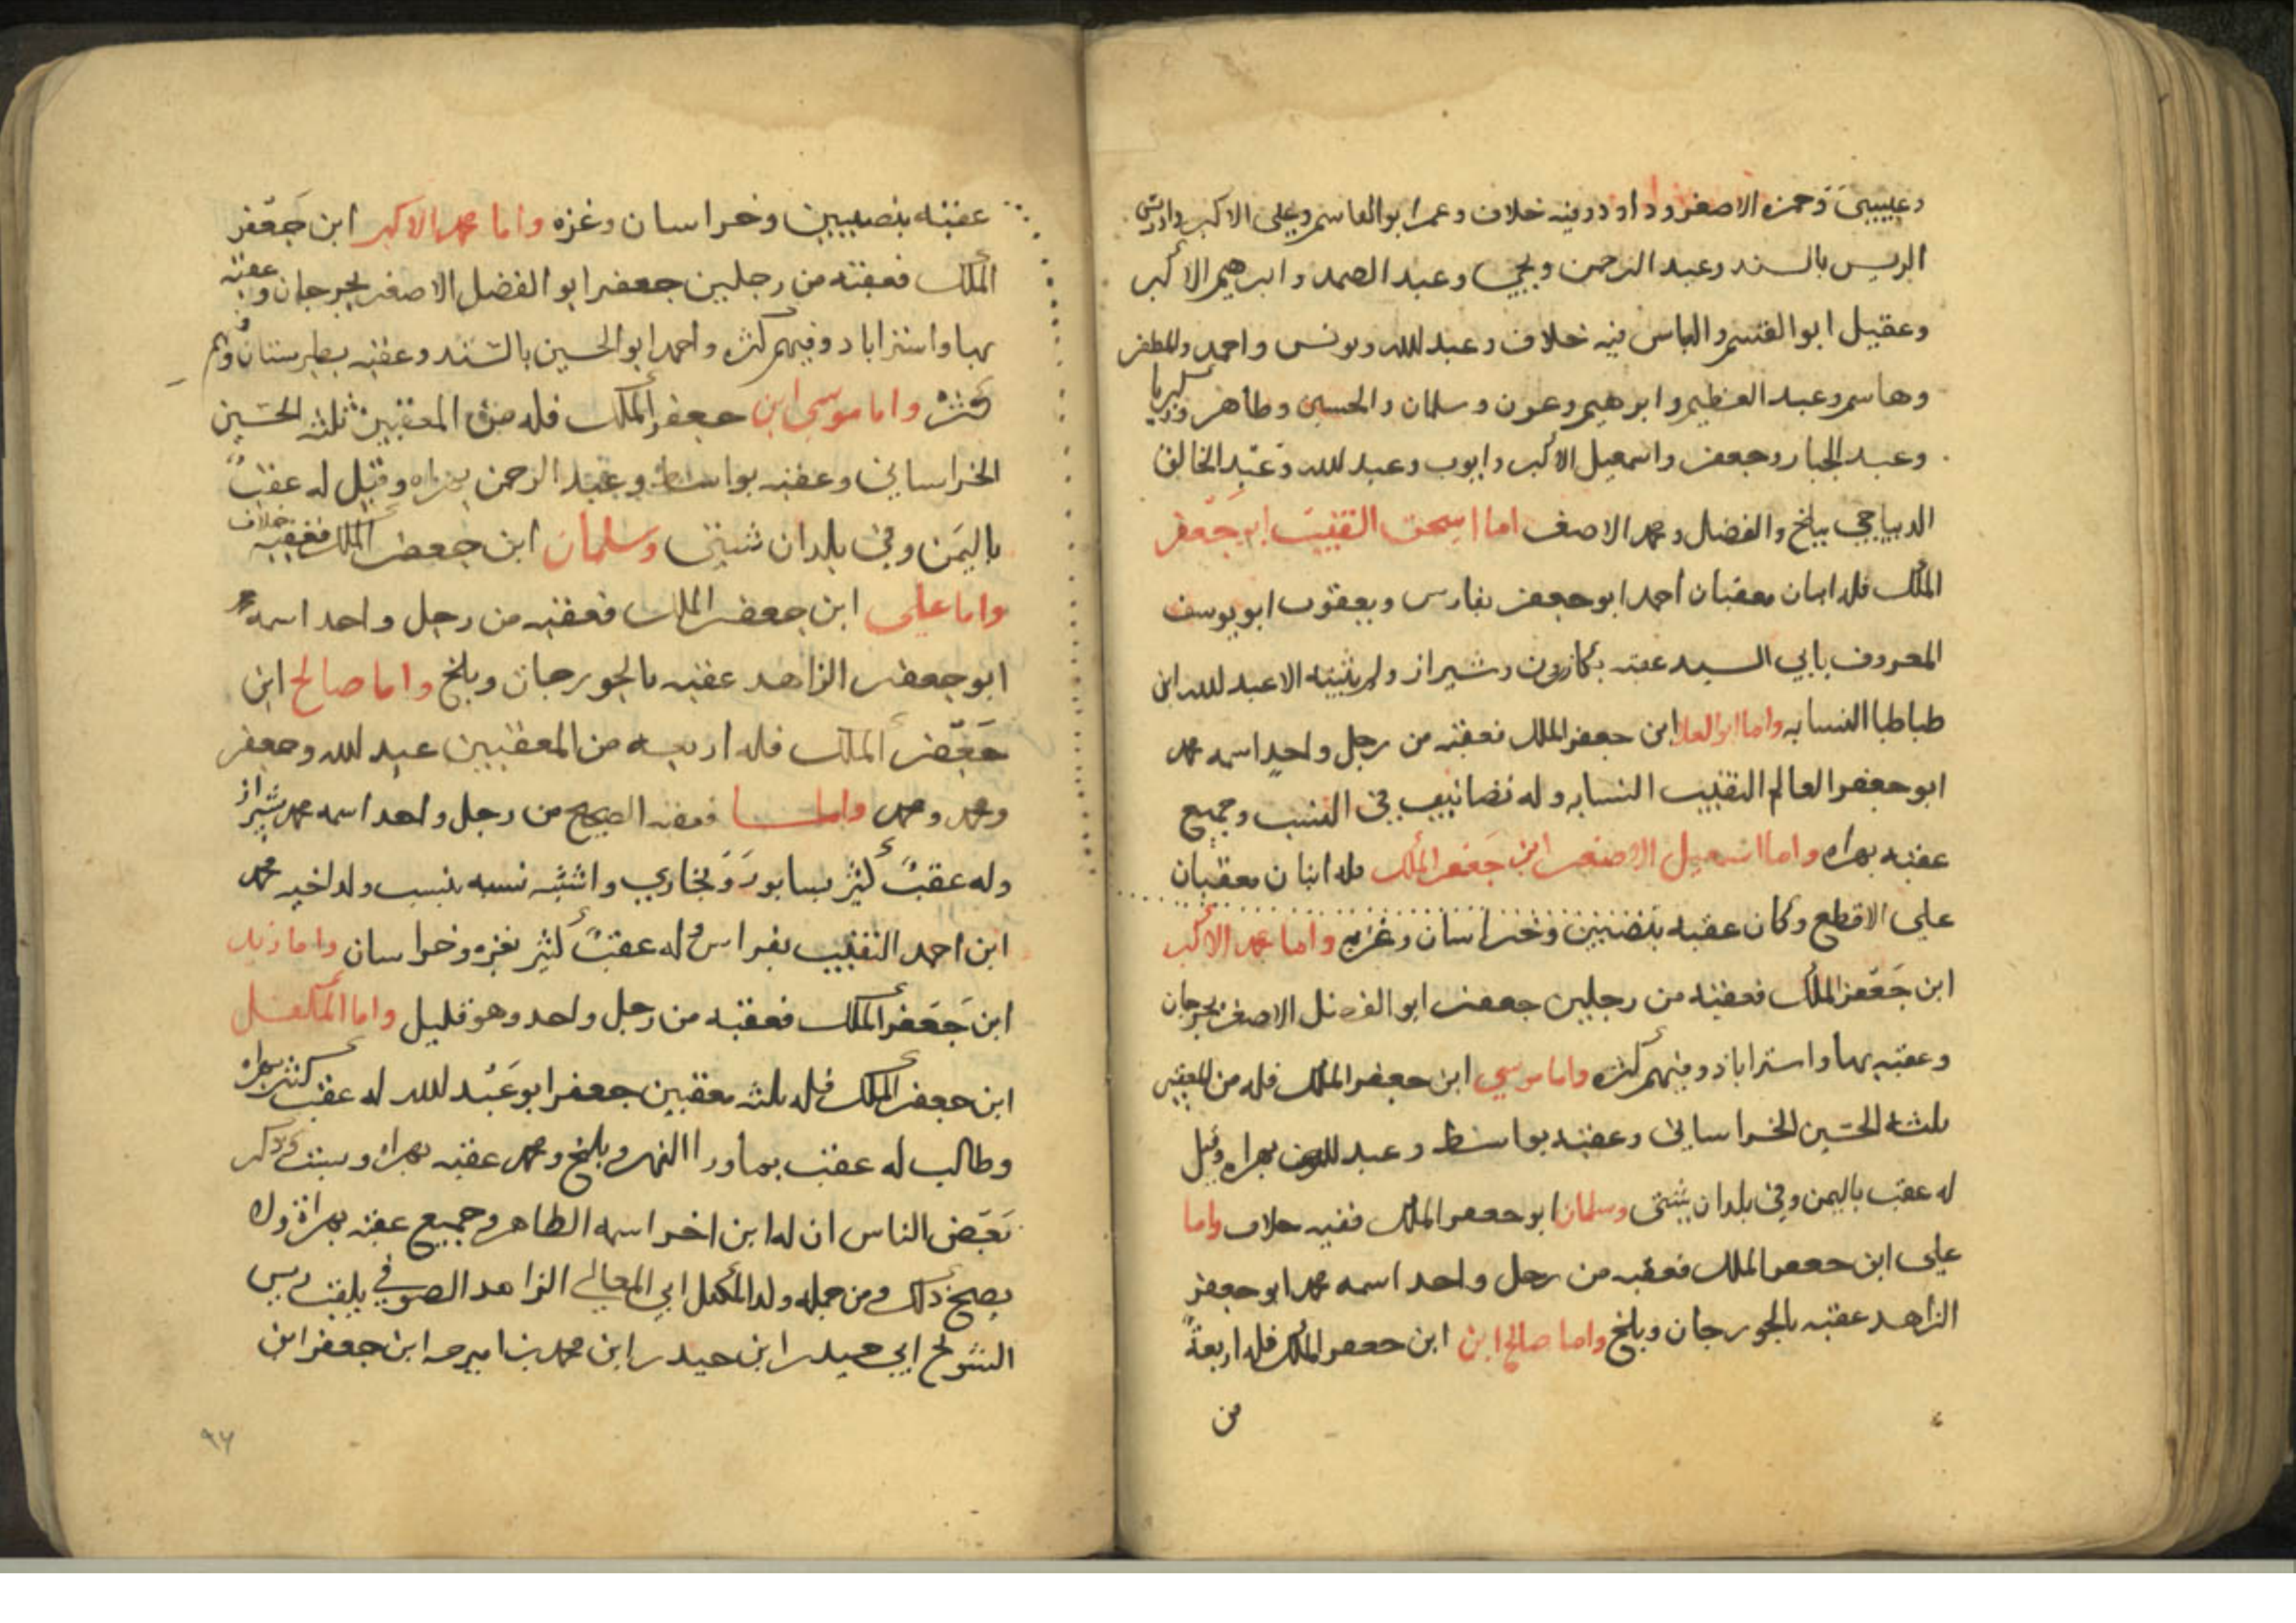 وعيسى وحمزه الاصغر وداود وفيه خلاف وعمر ابو القاسم وعلى الاكبر وادريس
الريس بالسند وعبد الرحمن ويحيى وعبد الصمد وابرهيم الاكبر
وعقيل ابو القسم والعباس فيه خلاف وعبد الله ويونس واحمد والمظفر
وهاشم وعبد العظيم وابرهيم وعون وسلمان والحسين وطاهر وزكريا
وعبد الجبار وجعفر واسمعيل الاكبر وايوب وعبد الله وعبد الخالق
الديباجى ببلخ والفضل ومحمد الاصغر اما اسحق النقيب ابن جعفر
الملك فله ابنان معقبان احمد ابو جعفر بفارس ويعقوب ابو يوسف
المعروف بابي السيد عقبه بكازرون وشيراز ولم يثبته الا عبد الله ابن
طباطبا النسابه واما ابو العلا ابن جعفر الملك فعقبه من رجل واحد اسمه محمد
ابو جعفر العالم النقيب النسابه وله تصانيف في النسب وجميع
عقبه بهراه واما اسمعيل الاصغر ابن جعفر الملك فله ابنان معقبان
على الاقطع وكان عقبه بنصيبين وخراسان وغزه واما محمد الاكبر
ابن جعفر الملك فعقبه من رجلين جعفر ابو الفضل الاصغر بجرجان
وعقبه بها واستراباد وفيهم كثره واما موسي ابن جعفر الملك فله من المعقبين
ثلثه الحسين الخراساني وعقبه بواسط وعبد الرحمن بهراه وقيل
له عقب باليمن وفي بلدان شتى وسلمان ابو جعفر الملك ففيه خلاف واما
على ابن جعفر الملك فعقبه من رجل واحد اسمه محمد ابو جعفر
الزاهد عقبه بالجورجان وبلخ واما صالح ابن ابن جعفر الملك فله اربعة
من
عقبه بنصيبين وخراسان وغزه واما محمد الاكبر ابن جعفر
الملك فعقبه من رجلين جعفر ابو الفضل الاصغر بجرجان وعقبه
بها واستراباد وفيهم كثره واحمد ابو الحسين بالسند وعقبه بطبرستان ولهم
كثره واما موسى ابن جعفر الملك فله من المعقبين ثلثه الحسين
الخراساني وعقبه بواسط وعبد الرحمن بهراه وقيل له عقب
باليمن وفي بلدان شتى وسلمان ابن جعفر الملك فعقبه خلاف
واما على ابن جعفر الملك فعقبه من رجل واحد اسمه محمد
ابو جعفر الزاهد عقبه بالجورجان وبلخ واما صالح ابن
جعفر الملك فله اربعه من المعقبين عبد الله وجعفر
ومحمد ومحمد فعقبه الصحيح من رجل واحد اسمه محمد بشيراز
وله عقب كثير بسابور وبخاري واثبته نسبه بنسب ولد اخيه محمد
ابن احمد النقيب وله عقب كثير بغزه وخراسان واما زيد
ابن جعفر الملك فعقبه من رجل واحد وهو قليل واما المكفل
ابن جعفر الملك فله ثلثه معقبين جعفر ابو عبد الله له عقب كثير بهراه
وطالب له عقب بماورا النهر وبلخ ومحمد عقبه بهراه
بعض الناس ان له ابن اخر اسمه الطاهر وجميع عقبه بهراة ولا
يصح ذلك ومن جمله ولد المكفل ابي المعالي الزاهد الصوفي يلقب
ابي حيدر ابن حيدر ابن محمد بن اميرجه ابن جعفر ابن
٩٧